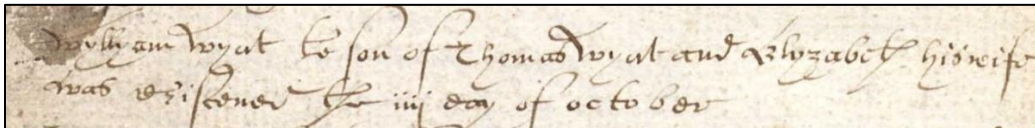 Wyllyam Wyat te son of Thomas Wyat and Elyzabeth his wife
was cristened the iiij day of october